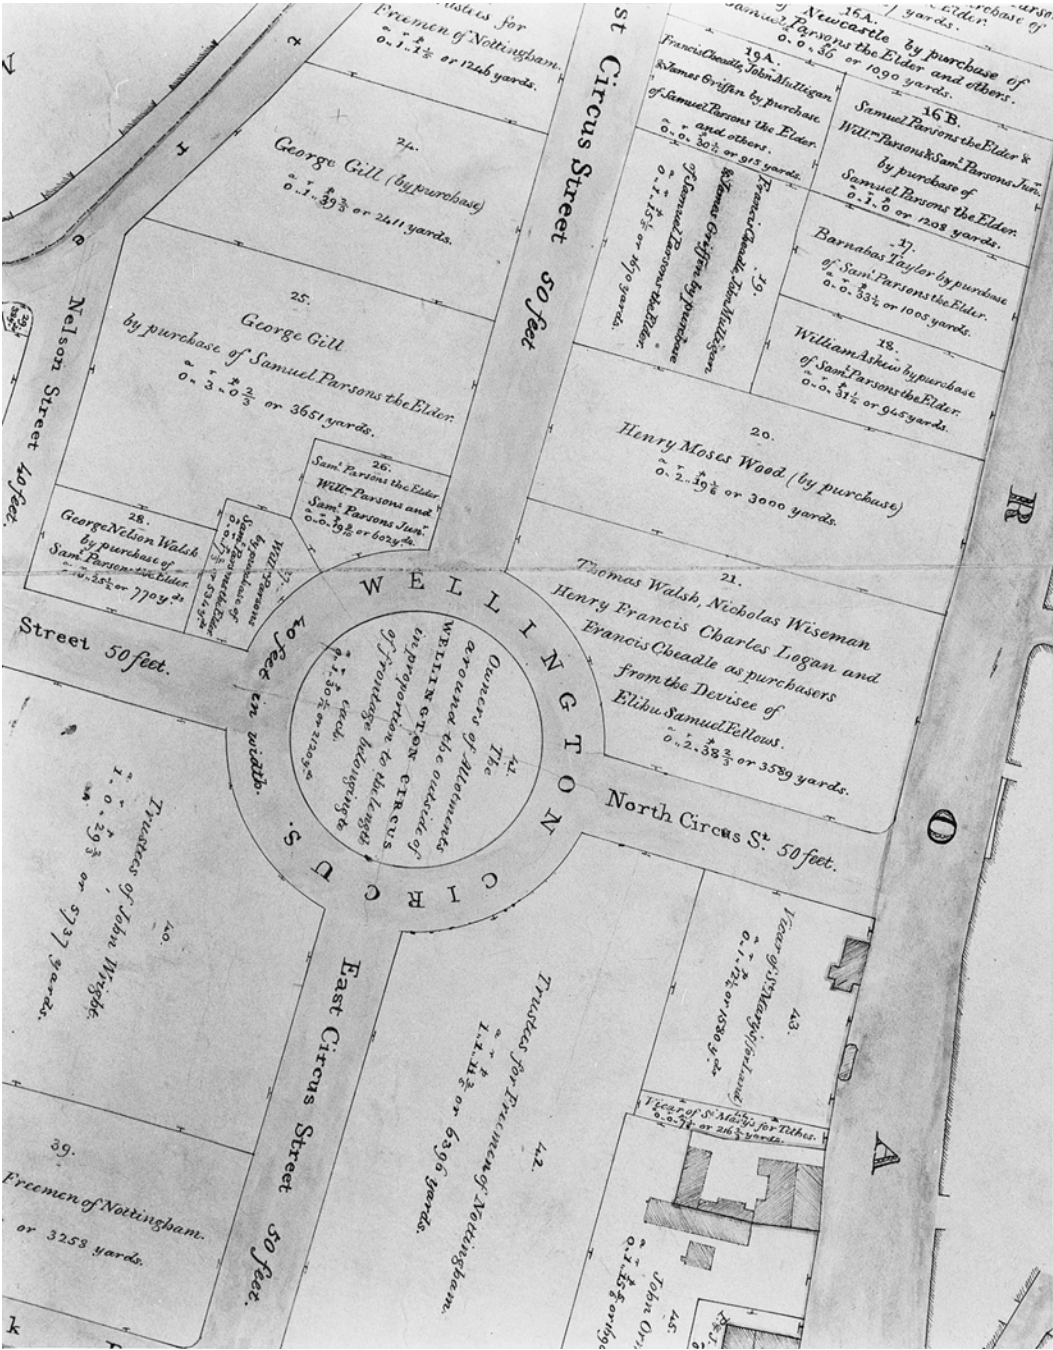 Trustees for
Freemen of Nottingham.
a r p
0.. 1.. 1 1/5 or 1246 yards.
24.
George Gill (by purchase)
a r p
0.. 1.. 39 2/3 or 2411 yards.
25.
George Gill
by purchase of Samuel Parsons the Elder.
a r p
0.. 3.. 0 2/3 or 3651 yards.
26.
Sam.l Parsons the Elder
Will.m Parsons and
Sam.l Parsons Jun.r
or 602 y.ds
27.
Will.m Parsons
by purchase of
Sam.l Parsons the Elder
or 534 y.ds
28.
George Nelson Walsh
by purchase of
Sam.l Parsons the Elder.
or 770 y.ds
Nelson Street 40 feet.
Street 50 feet.
st Circus Street 50 feet
16 A.
Newcastle by purchase of
Samuel Parsons the Elder and others.
0.. 0.. 36 or 1090 yards.
19 A.
Francis Cheadle, John Mulligan
& James Griffen by purchase
of Samuel Parsons the Elder
and others.
a r p
or 915 yards.
16 B.
Samuel Parsons the Elder &
Will.m Parsons & Sam.l Parsons Jun.r
by purchase of
Samuel Parsons the Elder.
a r p
0.. 1.. 0 or 1208 yards.
17.
Barnabas Taylor by purchase
of Sam.l Parsons the Elder.
a r p
0.. 0.. 33 1/4 or 1005 yards.
18.
William Askew by purchase
of Sam.l Parsons the Elder.
a r p
0.. 0.. 31 1/4 or 945 yards.
19.
Francis Cheadle, John Mulligan
& James Griffen by purchase
of Samuel Parsons the Elder.
a r p
or 1670 yards.
20.
Henry Moses Wood (by purchase)
a r p
0.. 2.. 19 1/6 or 3000 yards.
21.
Thomas Walsh, Nicholas Wiseman
Henry Francis Charles Logan and
Francis Cheadle as purchasers
from the Devisee of
Elihu Samuel Fellows.
a r p
0.. 2.. 38 2/3 or 3589 yards.
WELLINGTON CIRCUS.
40 feet in width.
41.
The
Owners of Allotments
around the outside of
WELLINGTON CIRCUS
in proportion to the length
of frontage belonging to
each.
North Circus S.t 50 feet.
East Circus Street 50 feet.
40.
Trustees of John Wright.
a r p
or 5737 yards.
39.
Freemen of Nottingham.
or 3258 yards.
42.
Trustees for Freemen of Nottingham.
a r p
or 6396 yards.
43.
Vicar of St. Mary's (for Land)
a r p
or 1580 y.ds
44.
Vicar of S.t Mary's for Tithes.
yards.
45.
John
R
O
A
k